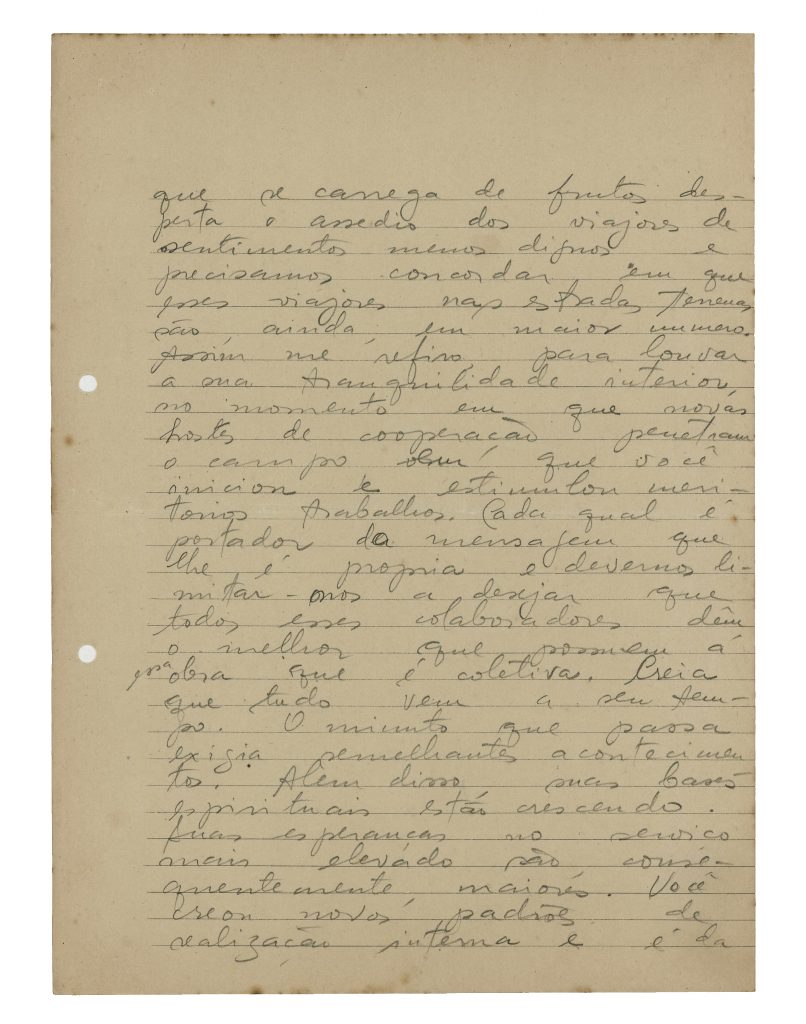 que se carrega de frutos des-
perta o assedio dos viajores de
sentimentos menos dignos e
precisamos concordar em que
esses viajores nas estradas terrenas
são, ainda, em maior numero.
Assim me refiro, para louvar
a sua tranquilidade interior,
no momento em que novas
hostes de cooperação penetram
o campo em que você
iniciou e estimulou meri-
torios trabalhos. Cada qual é
portador da mensagem que
lhe é propria e devemos li-
mitar-nos a desejar que
todos esses colaboradores dêm
o melhor que possuem á
essa obra que é coletiva. Creia
que tudo vem a seu tem-
po. O minuto que passa
exigia semelhantes acontecimen
tos. Alem disso, suas bases
espirituais estão crescendo.
Suas esperanças no serviço
mais elevado são conse-
quentemente, maiores. Você
creou novos padrões de
realização interna e é da